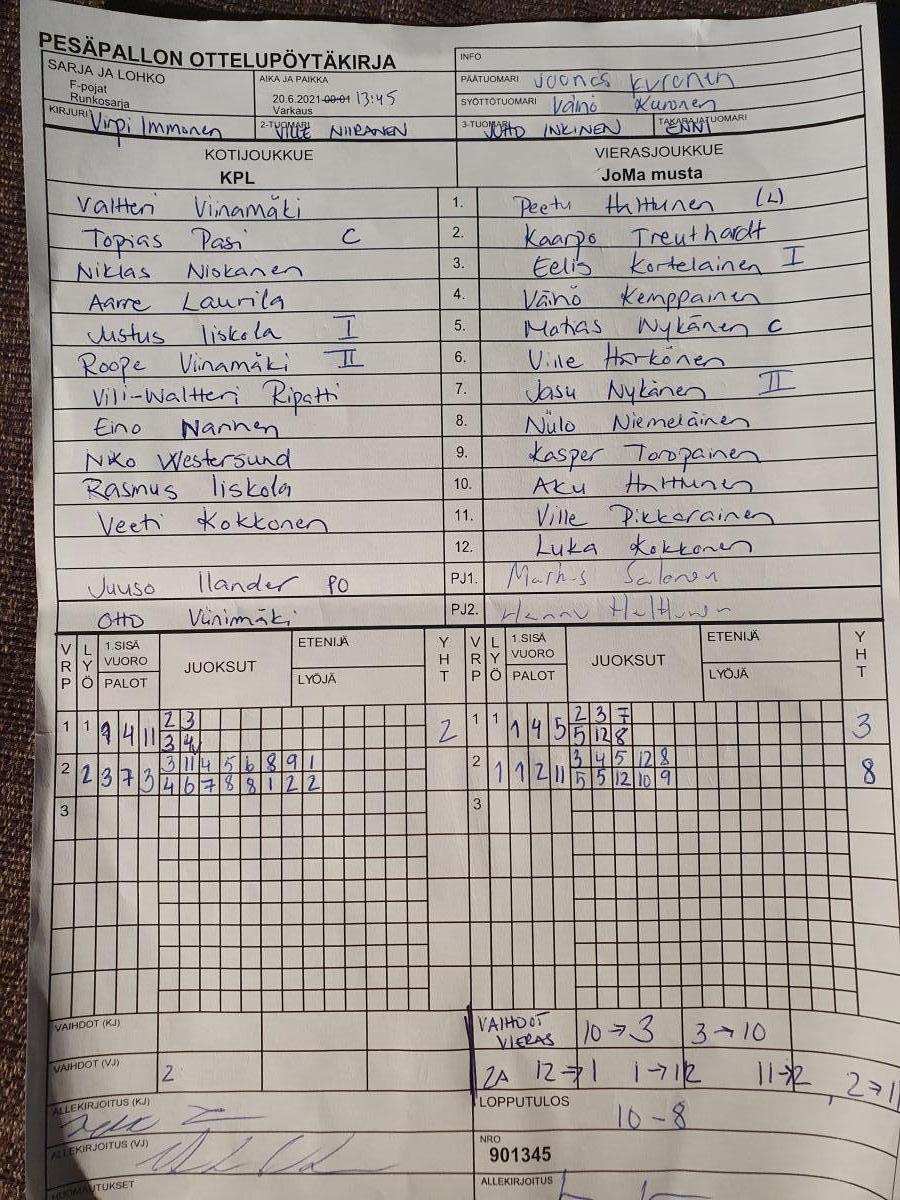 PESÄPALLON OTTELUPÖYTÄKIRJA
INFO
SARJA JA LOHKO
F-pojat
Runkosarja
AIKA JA PAIKKA
20.6.2021 00:01 13:45
Varkaus
PÄÄTUOMARI Joonas Kuronen
SYÖTTÖTUOMARI Väinö Kuronen
KIRJURI Virpi Immonen
2-TUOMARI VILLE NIIRANEN
3-TUOMARI JUHO INKINEN
TAKARAJATUOMARI ENNI
KOTIJOUKKUE
KPL
VIERASJOUKKUE
JoMa musta
Valtteri Viinamäki 1. Peetu Halttunen (L)
Topias Pasi C 2. Kaarpo Treuthardt
Niklas Niskanen 3. Eelis Kortelainen I
Aarre Laurila 4. Väinö Kemppainen
Justus Iiskola I 5. Matias Nykänen C
Roope Viinamäki II 6. Ville Härkönen
Vili-Waltteri Ripatti 7. Jasu Nykänen II
Eino Nannen 8. Niilo Niemeläinen
Niko Westersund 9. Kasper Toropainen
Rasmus Iiskola 10. Aku Halttunen
Veeti Kokkonen 11. Ville Pikkarainen
12. Luka Kokkonen
Juuso Ilander PO PJ1. Salonen
Otto Viinimäki PJ2. Hannu Halttunen
VRP LYÖ 1.SISÄ VUORO PALOT JUOKSUT ETENIJÄ LYÖJÄ YHT
VRP LYÖ 1.SISÄ VUORO PALOT JUOKSUT ETENIJÄ LYÖJÄ YHT
1 1 9 4 11 2 3 2 1 1 1 4 5 2 3 7 3
3 4 5 12 8
2 2 3 7 3 3 11 4 5 6 8 9 1 2 1 1 2 11 3 4 5 12 8 8
4 6 7 8 8 1 2 2 5 5 12 10 9
3 3
VAIHDOT (KJ)
VAIHDOT VIERAS 10→3 3→10
VAIHDOT (VJ) 2
2A 12→1 1→12 11→2, 2→11
ALLEKIRJOITUS (KJ)
LOPPUTULOS
10-8
ALLEKIRJOITUS (VJ)
NRO
901345
HUOMAUTUKSET
ALLEKIRJOITUS